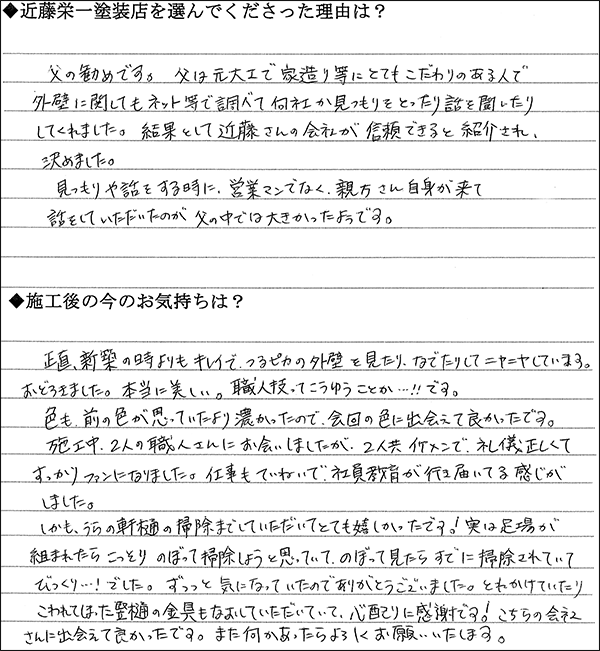 ◆近藤栄一塗装店を選んでくださった理由は？
父の勧めです。父は元大工で家造り等にとてもこだわりのある人で
外壁に関してもネット等で調べて何社か見つもりをとったり話を聞いたり
してくれました。結果として近藤さんの会社が信頼できると紹介され、
決めました。
見つもりや話をする時に、営業マンでなく、親方さん自身が来て
話をしていただいたのが父の中では大きかったようです。
◆施工後の今のお気持ちは？
正直、新築の時よりもキレイで、つるピカの外壁を見たり、なでたりしてニヤニヤしています。
おどろきました。本当に美しい。職人技ってこうゆうことか…!!です。
色も、前の色が思っていたより濃かったので、今回の色に出会えて良かったです。
施工中、2人の職人さんにお会いしましたが、2人共イケメンで、礼儀正しくて
すっかりファンになりました。仕事もていねいで、社員教育が行き届いてる感じが
しました。
しかも、うらの軒樋の掃除までしていただいてとても嬉しかったです！実は足場が
組まれたらこっそりのぼって掃除しようと思っていて、のぼって見たらすでに掃除されていて
びっくり…！でした。ずっっと気になっていたのでありがとうございました。とれかけていたり
こわれてしまった竪樋の金具もなおしていただいていて、心配てりに感謝です！こちらの会社
さんに出会えて良かったです。また何かあったらよろしくお願いいたします。